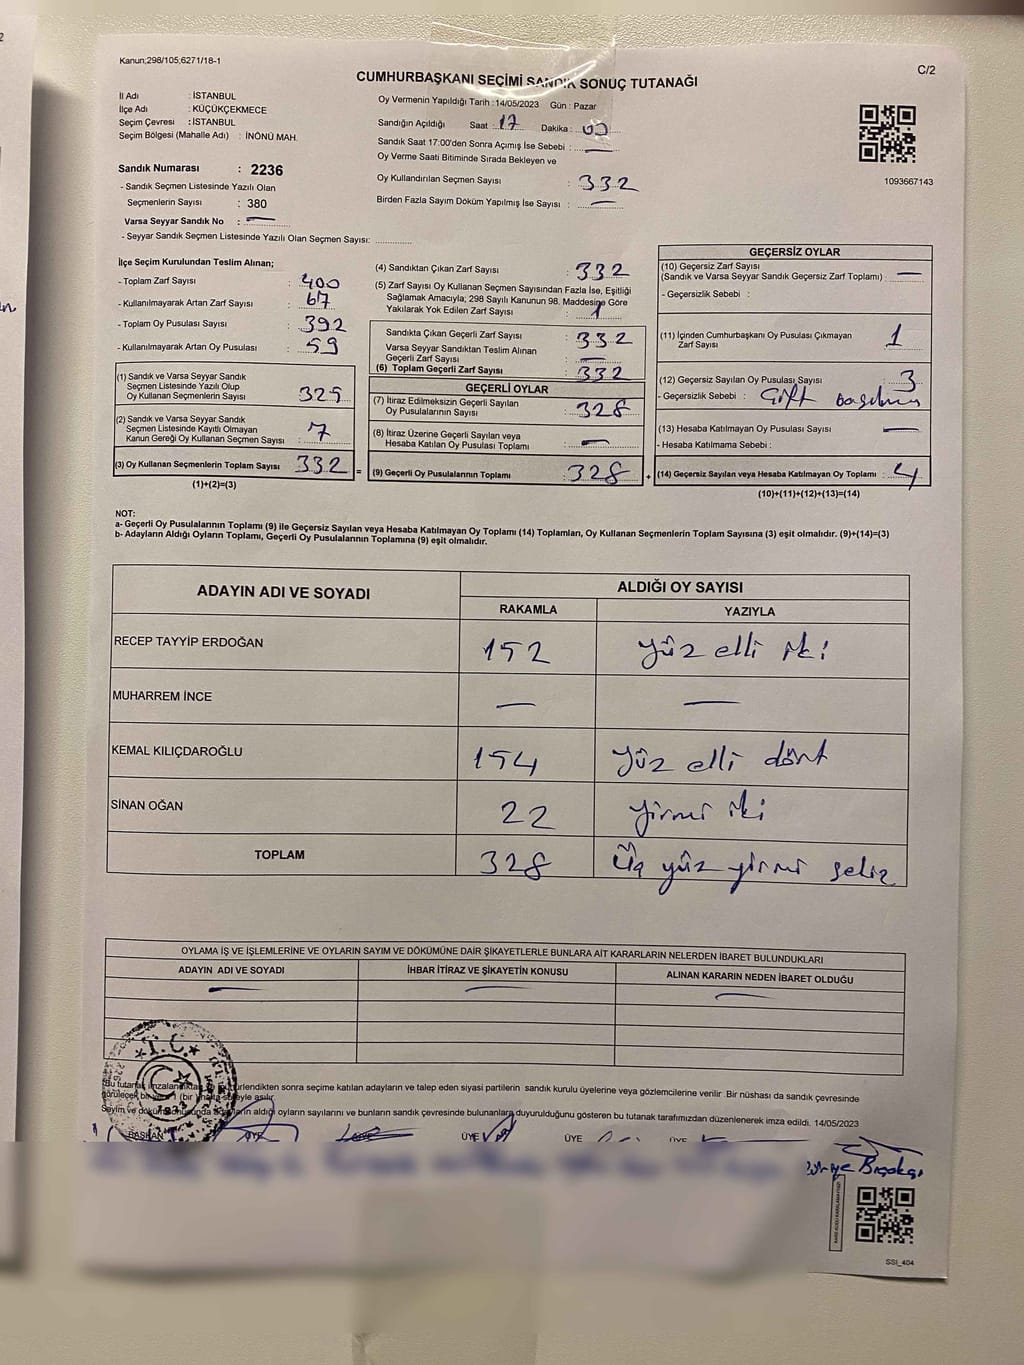 Kanun;298/105;6271/18-1
C/2
CUMHURBAŞKANI SEÇİMİ SANDIK SONUÇ TUTANAĞI
İl Adı : İSTANBUL
İlçe Adı : KÜÇÜKÇEKMECE
Seçim Çevresi : İSTANBUL
Seçim Bölgesi (Mahalle Adı) : İNÖNÜ MAH.
Oy Vermenin Yapıldığı Tarih :14/05/2023 Gün : Pazar
Sandığın Açıldığı Saat : 17 Dakika : 00
Sandık Saat 17:00'den Sonra Açımış İse Sebebi : —
Oy Verme Saati Bitiminde Sırada Bekleyen ve
Oy Kullandırılan Seçmen Sayısı : 332
Birden Fazla Sayım Döküm Yapılmış İse Sayısı : —
1093667143
Sandık Numarası : 2236
- Sandık Seçmen Listesinde Yazılı Olan
Seçmenlerin Sayısı : 380
Varsa Seyyar Sandık No : —
- Seyyar Sandık Seçmen Listesinde Yazılı Olan Seçmen Sayısı:
İlçe Seçim Kurulundan Teslim Alınan;
- Toplam Zarf Sayısı : 400
- Kullanılmayarak Artan Zarf Sayısı : 67
- Toplam Oy Pusulası Sayısı : 392
- Kullanılmayarak Artan Oy Pusulası : 59
(1) Sandık ve Varsa Seyyar Sandık
Seçmen Listesinde Yazılı Olup
Oy Kullanan Seçmenlerin Sayısı : 325
(2) Sandık ve Varsa Seyyar Sandık
Seçmen Listesinde Kayıtlı Olmayan
Kanun Gereği Oy Kullanan Seçmen Sayısı : 7
(3) Oy Kullanan Seçmenlerin Toplam Sayısı 332 =
(1)+(2)=(3)
(4) Sandıktan Çıkan Zarf Sayısı : 332
(5) Zarf Sayısı Oy Kullanan Seçmen Sayısından Fazla İse, Eşitliği
Sağlamak Amacıyla; 298 Sayılı Kanunun 98. Maddesine Göre
Yakılarak Yok Edilen Zarf Sayısı : 1
Sandıkta Çıkan Geçerli Zarf Sayısı : 332
Varsa Seyyar Sandıktan Teslim Alınan
Geçerli Zarf Sayısı : —
(6) Toplam Geçerli Zarf Sayısı : 332
GEÇERLİ OYLAR
(7) İtiraz Edilmeksizin Geçerli Sayılan
Oy Pusulalarının Sayısı : 328
(8) İtiraz Üzerine Geçerli Sayılan veya
Hesaba Katılan Oy Pusulası Toplamı : —
(9) Geçerli Oy Pusulalarının Toplamı : 328 +
GEÇERSİZ OYLAR
(10) Geçersiz Zarf Sayısı
(Sandık ve Varsa Seyyar Sandık Geçersiz Zarf Toplamı) : —
- Geçersizlik Sebebi :
(11) İçinden Cumhurbaşkanı Oy Pusulası Çıkmayan
Zarf Sayısı : 1
(12) Geçersiz Sayılan Oy Pusulası Sayısı : 3
- Geçersizlik Sebebi : Çift
(13) Hesaba Katılmayan Oy Pusulası Sayısı : —
- Hesaba Katılmama Sebebi :
(14) Geçersiz Sayılan veya Hesaba Katılmayan Oy Toplamı : 4
(10)+(11)+(12)+(13)=(14)
NOT:
a- Geçerli Oy Pusulalarının Toplamı (9) ile Geçersiz Sayılan veya Hesaba Katılmayan Oy Toplamı (14) Toplamları, Oy Kullanan Seçmenlerin Toplam Sayısına (3) eşit olmalıdır. (9)+(14)=(3)
b- Adayların Aldığı Oyların Toplamı, Geçerli Oy Pusulalarının Toplamına (9) eşit olmalıdır.
ADAYIN ADI VE SOYADI ALDIĞI OY SAYISI
RAKAMLA YAZIYLA
RECEP TAYYİP ERDOĞAN 152 yüz elli iki
MUHARREM İNCE — —
KEMAL KILIÇDAROĞLU 154 yüz elli dört
SİNAN OĞAN 22 yirmi iki
TOPLAM 328 Üç yüz yirmi sekiz
OYLAMA İŞ VE İŞLEMLERİNE VE OYLARIN SAYIM VE DÖKÜMÜNE DAİR ŞİKAYETLERLE BUNLARA AİT KARARLARIN NELERDEN İBARET BULUNDUKLARI
ADAYIN ADI VE SOYADI İHBAR İTİRAZ VE ŞİKAYETİN KONUSU ALINAN KARARIN NEDEN İBARET OLDUĞU
— — —
T.C.
Bu tutanak imzalandıktan ve mühürlendikten sonra seçime katılan adayların ve talep eden siyasi partilerin sandık kurulu üyelerine veya gözlemcilerine verilir. Bir nüshası da sandık çevresinde
görülecek bir yere 1 (bir) hafta süreyle asılır.
Seyim ve döküm sonucunda adayların aldığı oyların sayılarını ve bunların sandık çevresinde bulunanlara duyurulduğunu gösteren bu tutanak tarafımızdan düzenlenerek imza edildi. 14/05/2023
BAŞKAN ÜYE ÜYE ÜYE ÜYE
Bıçakçı
SSI_404